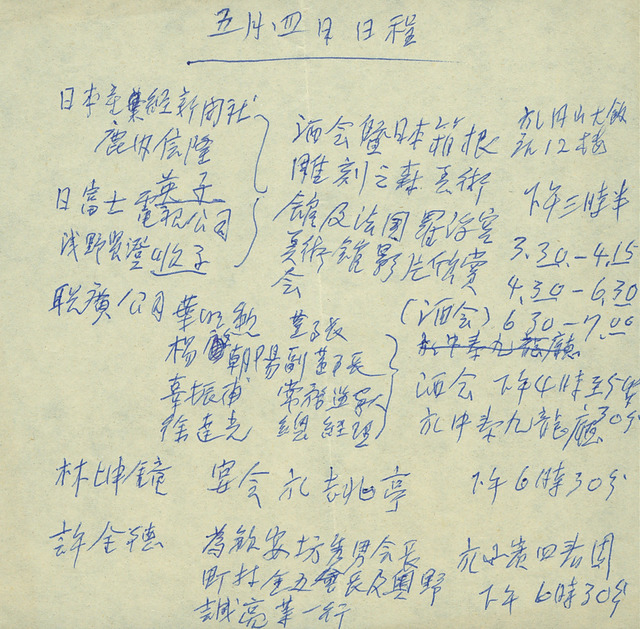 五月四日日程
日本產業經新聞社
鹿內信隆
英子
日富士電視公司
浅野賢澄
酒会暨日本箱根
雕刻之森美術
館及法国羅浮宮
美術館影片欣賞
会
於圓山大飯
店12楼
下午三時半
3.30.-4.15
4.30-6.30
(酒会) 6.30-7.00
联廣公司 董事長
楊朝陽副董事長
辜振甫 常務董事
徐達光 總經理
於中泰九龍廳
酒会 下午4時至5时
30分
於中泰九龍廳
林坤鐘 宴会 於 亭 下午6時30分
許金德 為歡安坊 会長
町村金五會長及奧野
誠亮等一行
於 四春園
下午 6時30分